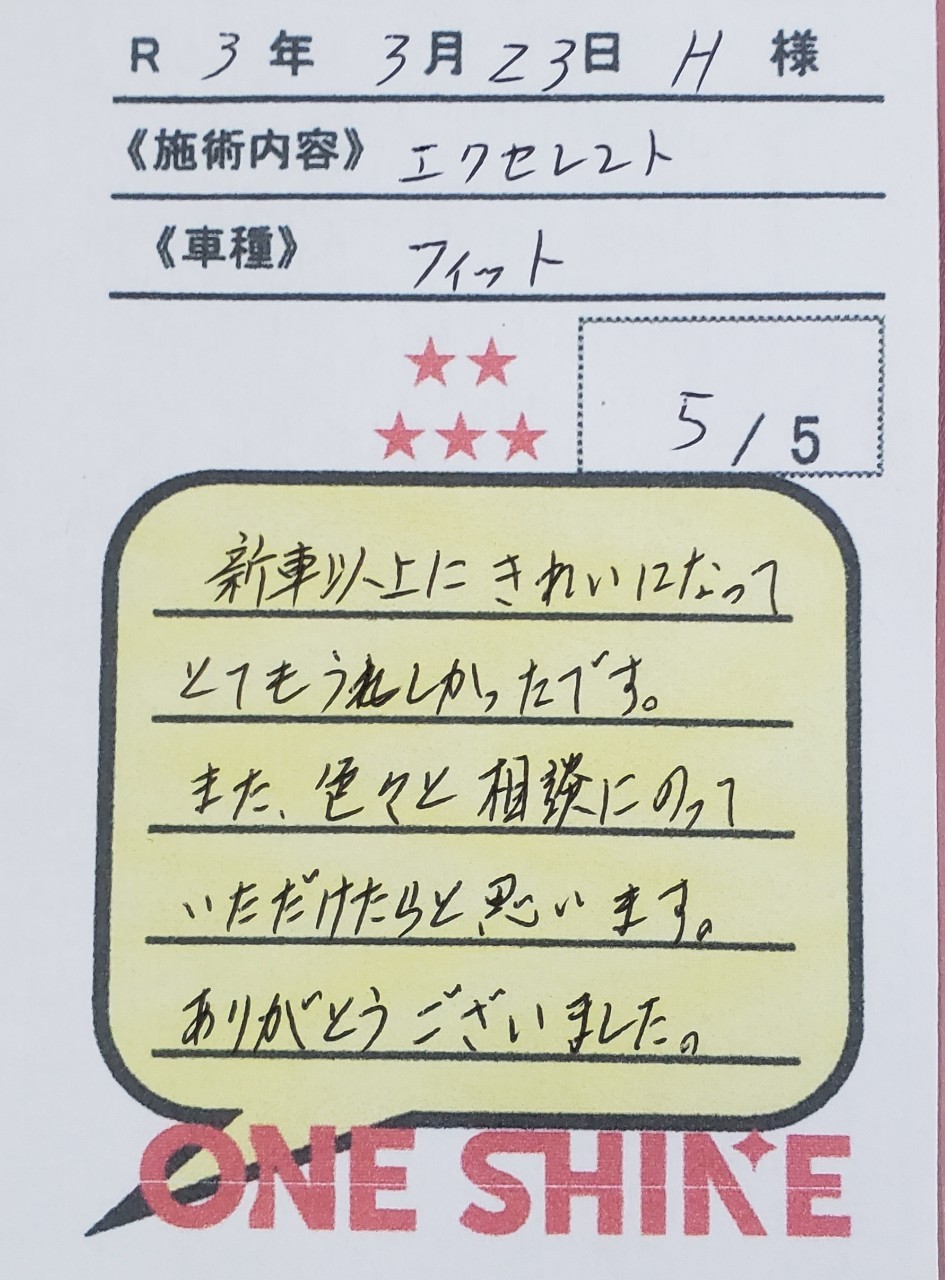 R 3年 3月23日 H 様
《施術内容》 エクセレント
《車種》 フィット
★★
★★★
5/5
新車以上にきれいになって
とてもうれしかったです。
また、色々と相談にのって
いただけたらと思います。
ありがとうございました。
ONE SHINE